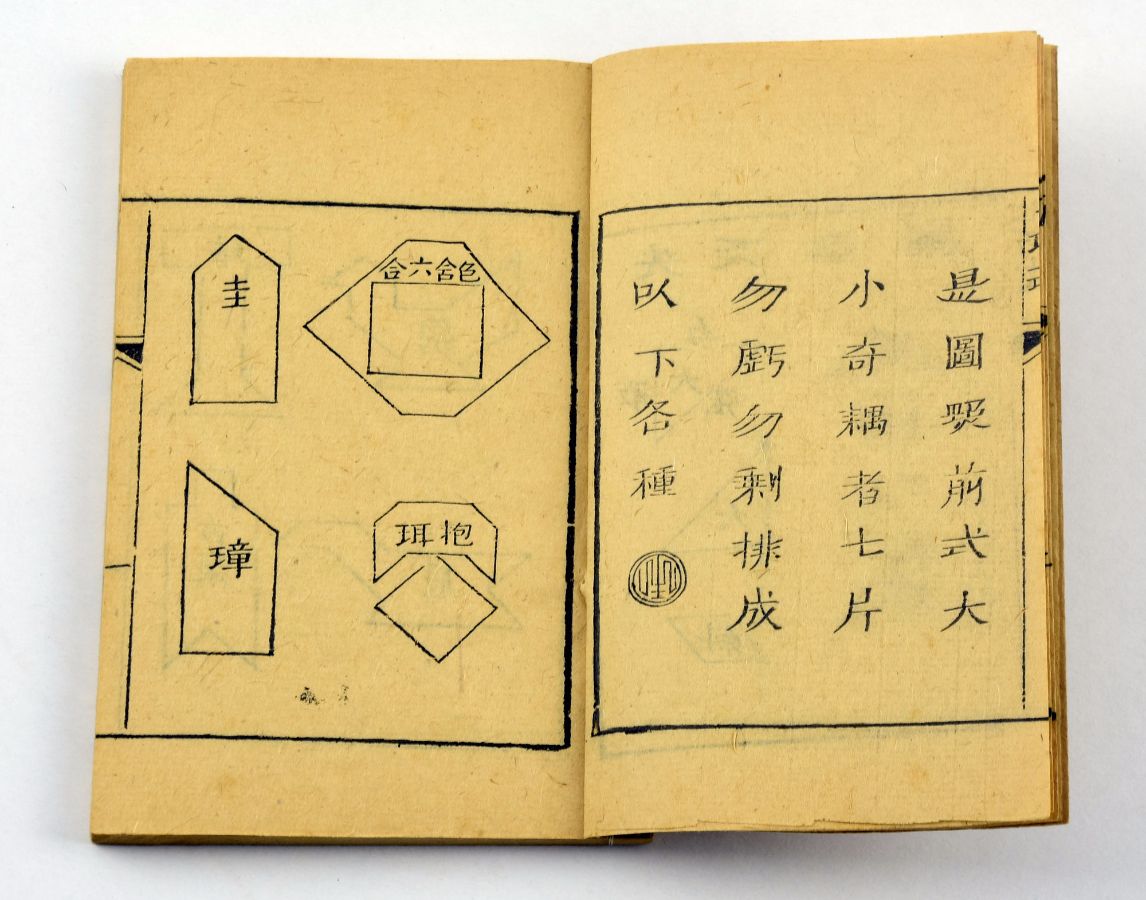 是圖照前式大
小奇耦者七片
勿虧勿剩排成
以下各種
色含六合
抱珥
圭
璋